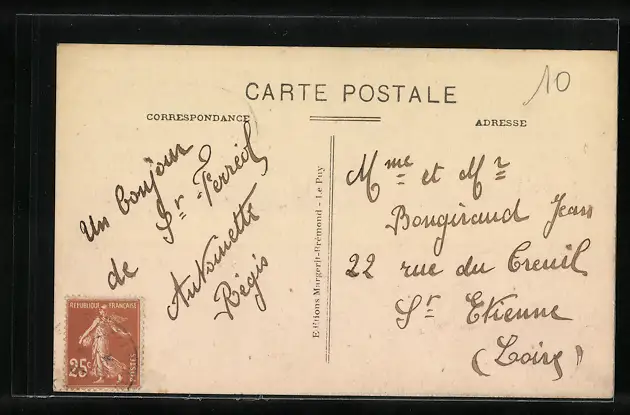 10
CARTE POSTALE
CORRESPONDANCE
ADRESSE
Un bonjour
de St-Ferréol
Antoinette
Régis
Editions Margerit-Brémond - Le Puy
Mme et Mr
Bongiraud Jean
22 rue du Creuil
St Etienne
(Loire)
REPUBLIQUE FRANÇAISE
25c
POSTES